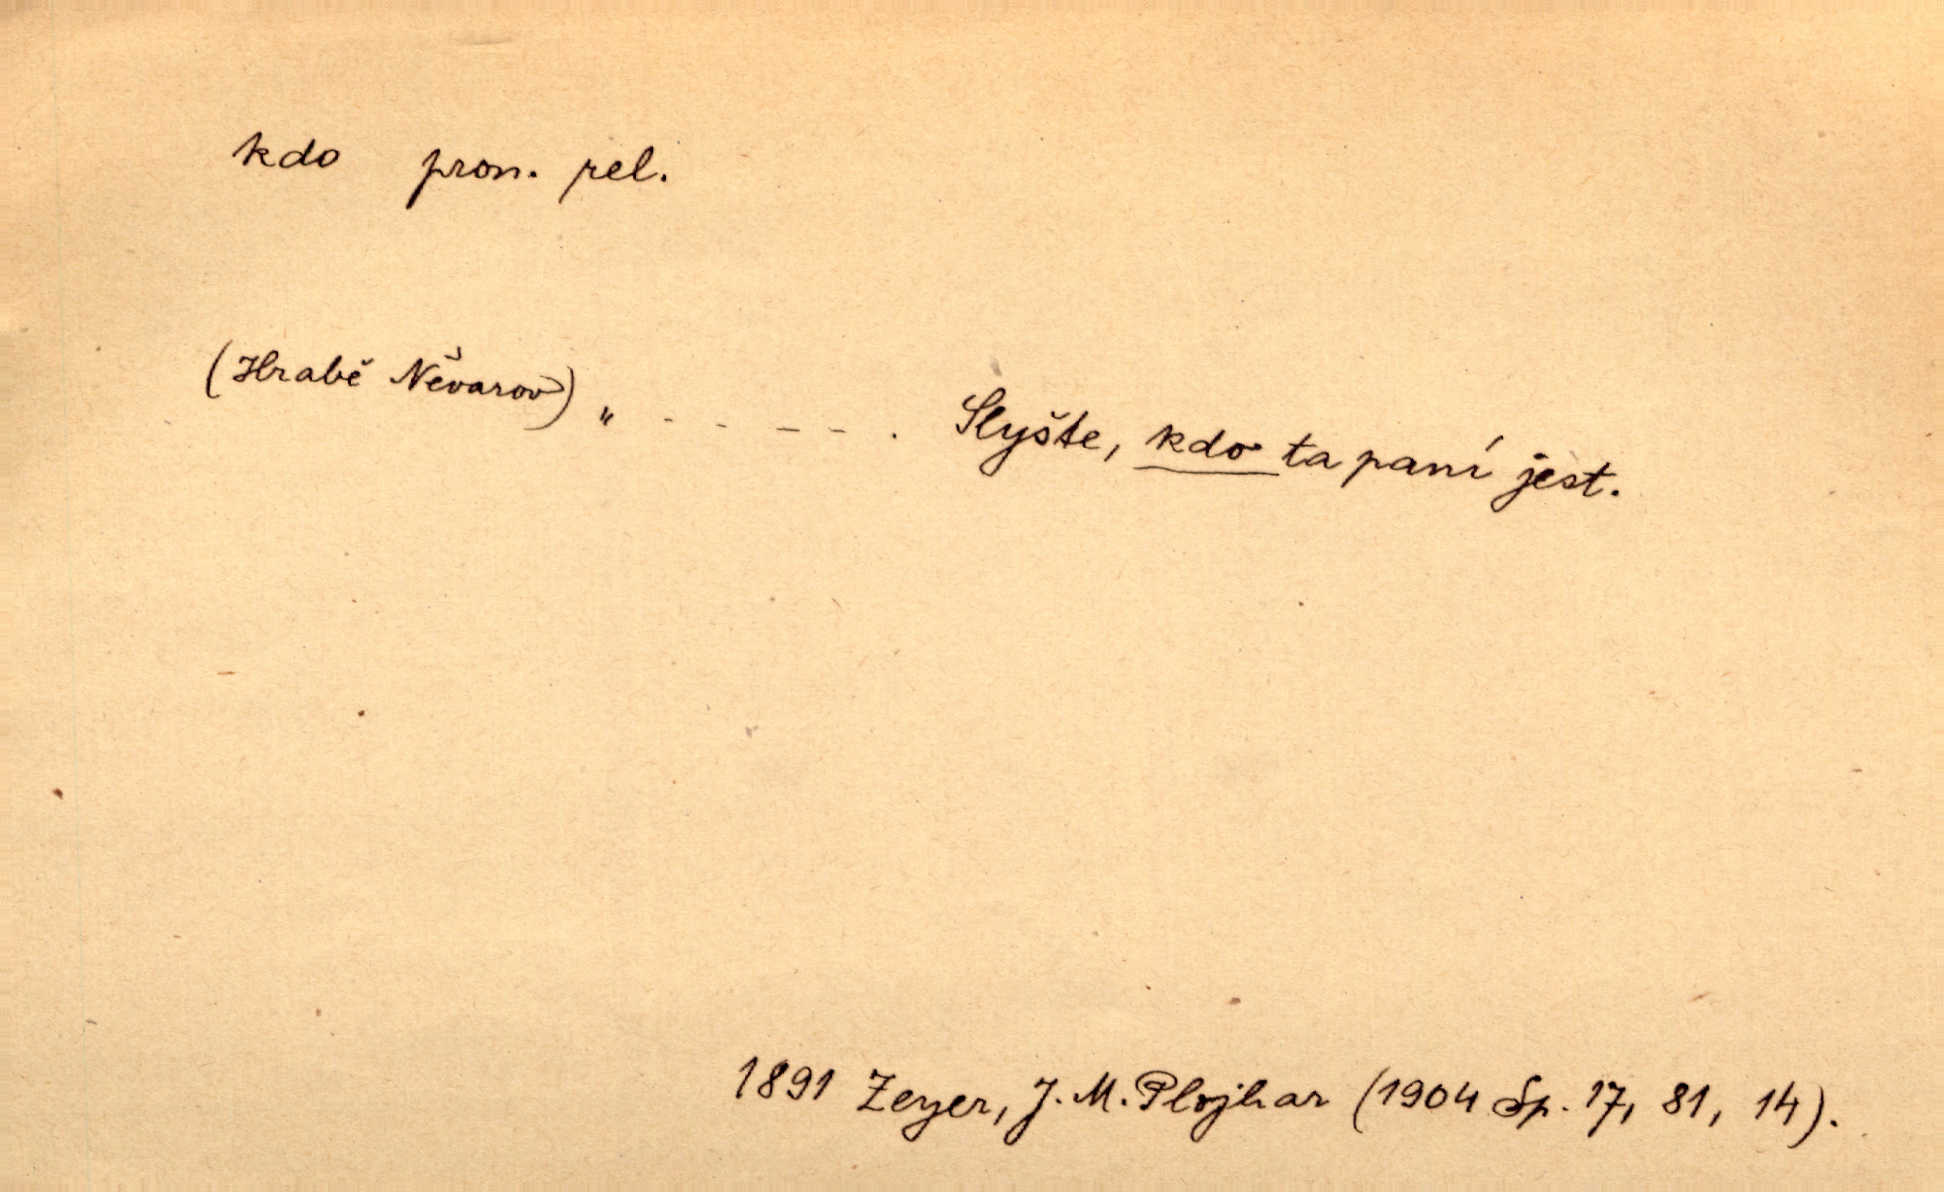 kdo pron. rel.
(Hrabě Něvarov) „ - - - - . Slyšte, kdo ta paní jest.
1891 Zeyer, J. M. Plojhar (1904 Sp. 17, 81, 14).